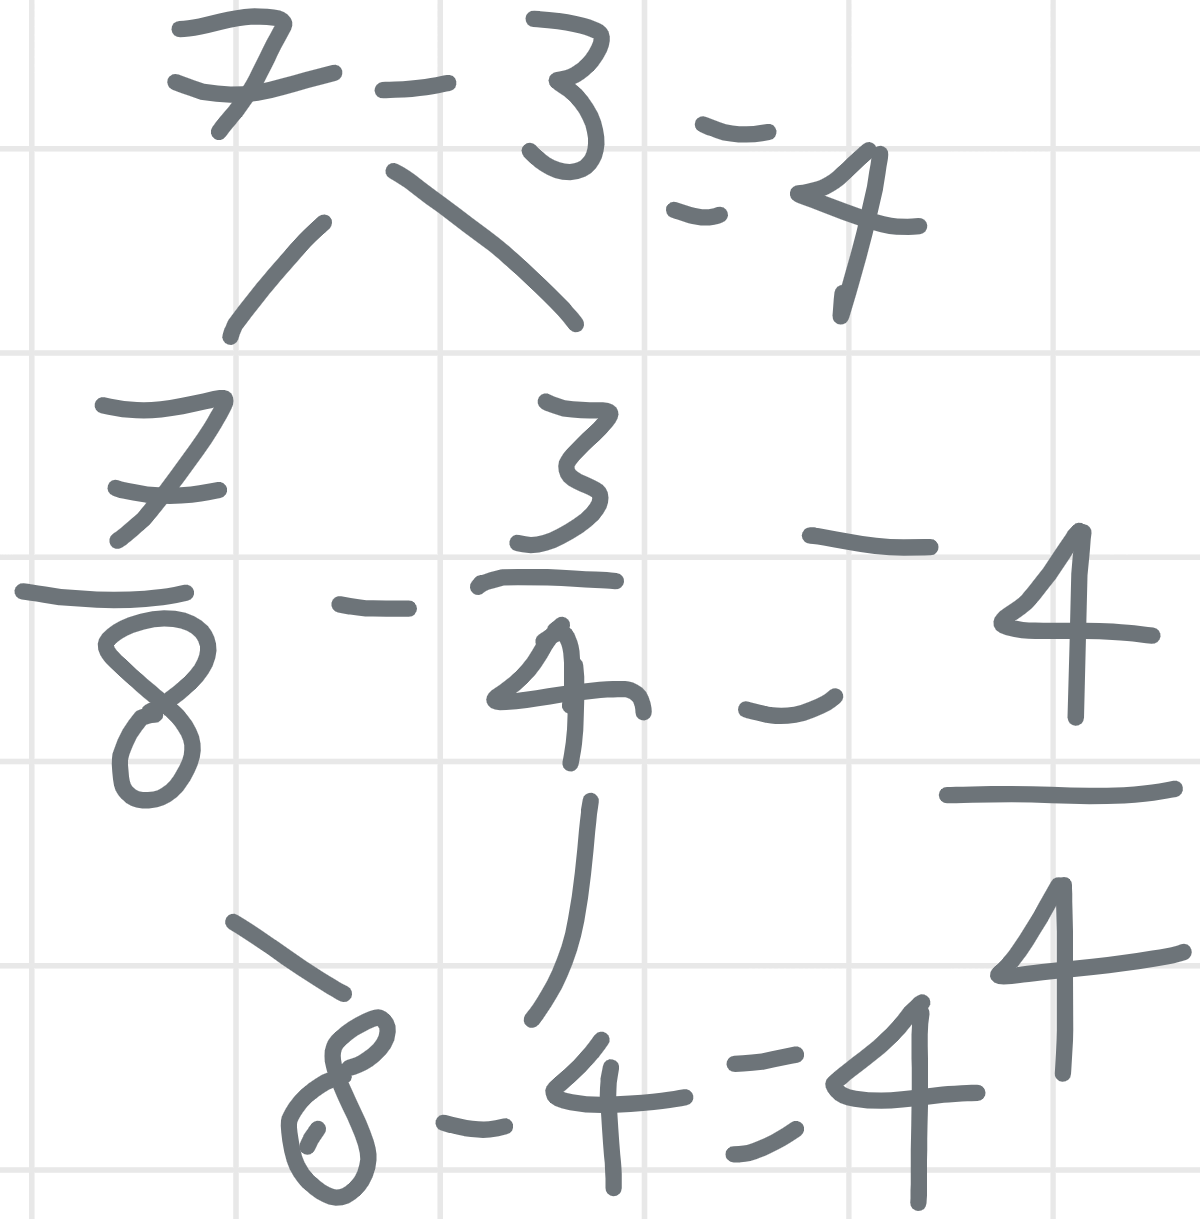 7 - 3 = 4
7/8 - 3/4 = 4/4
8 - 4 = 4